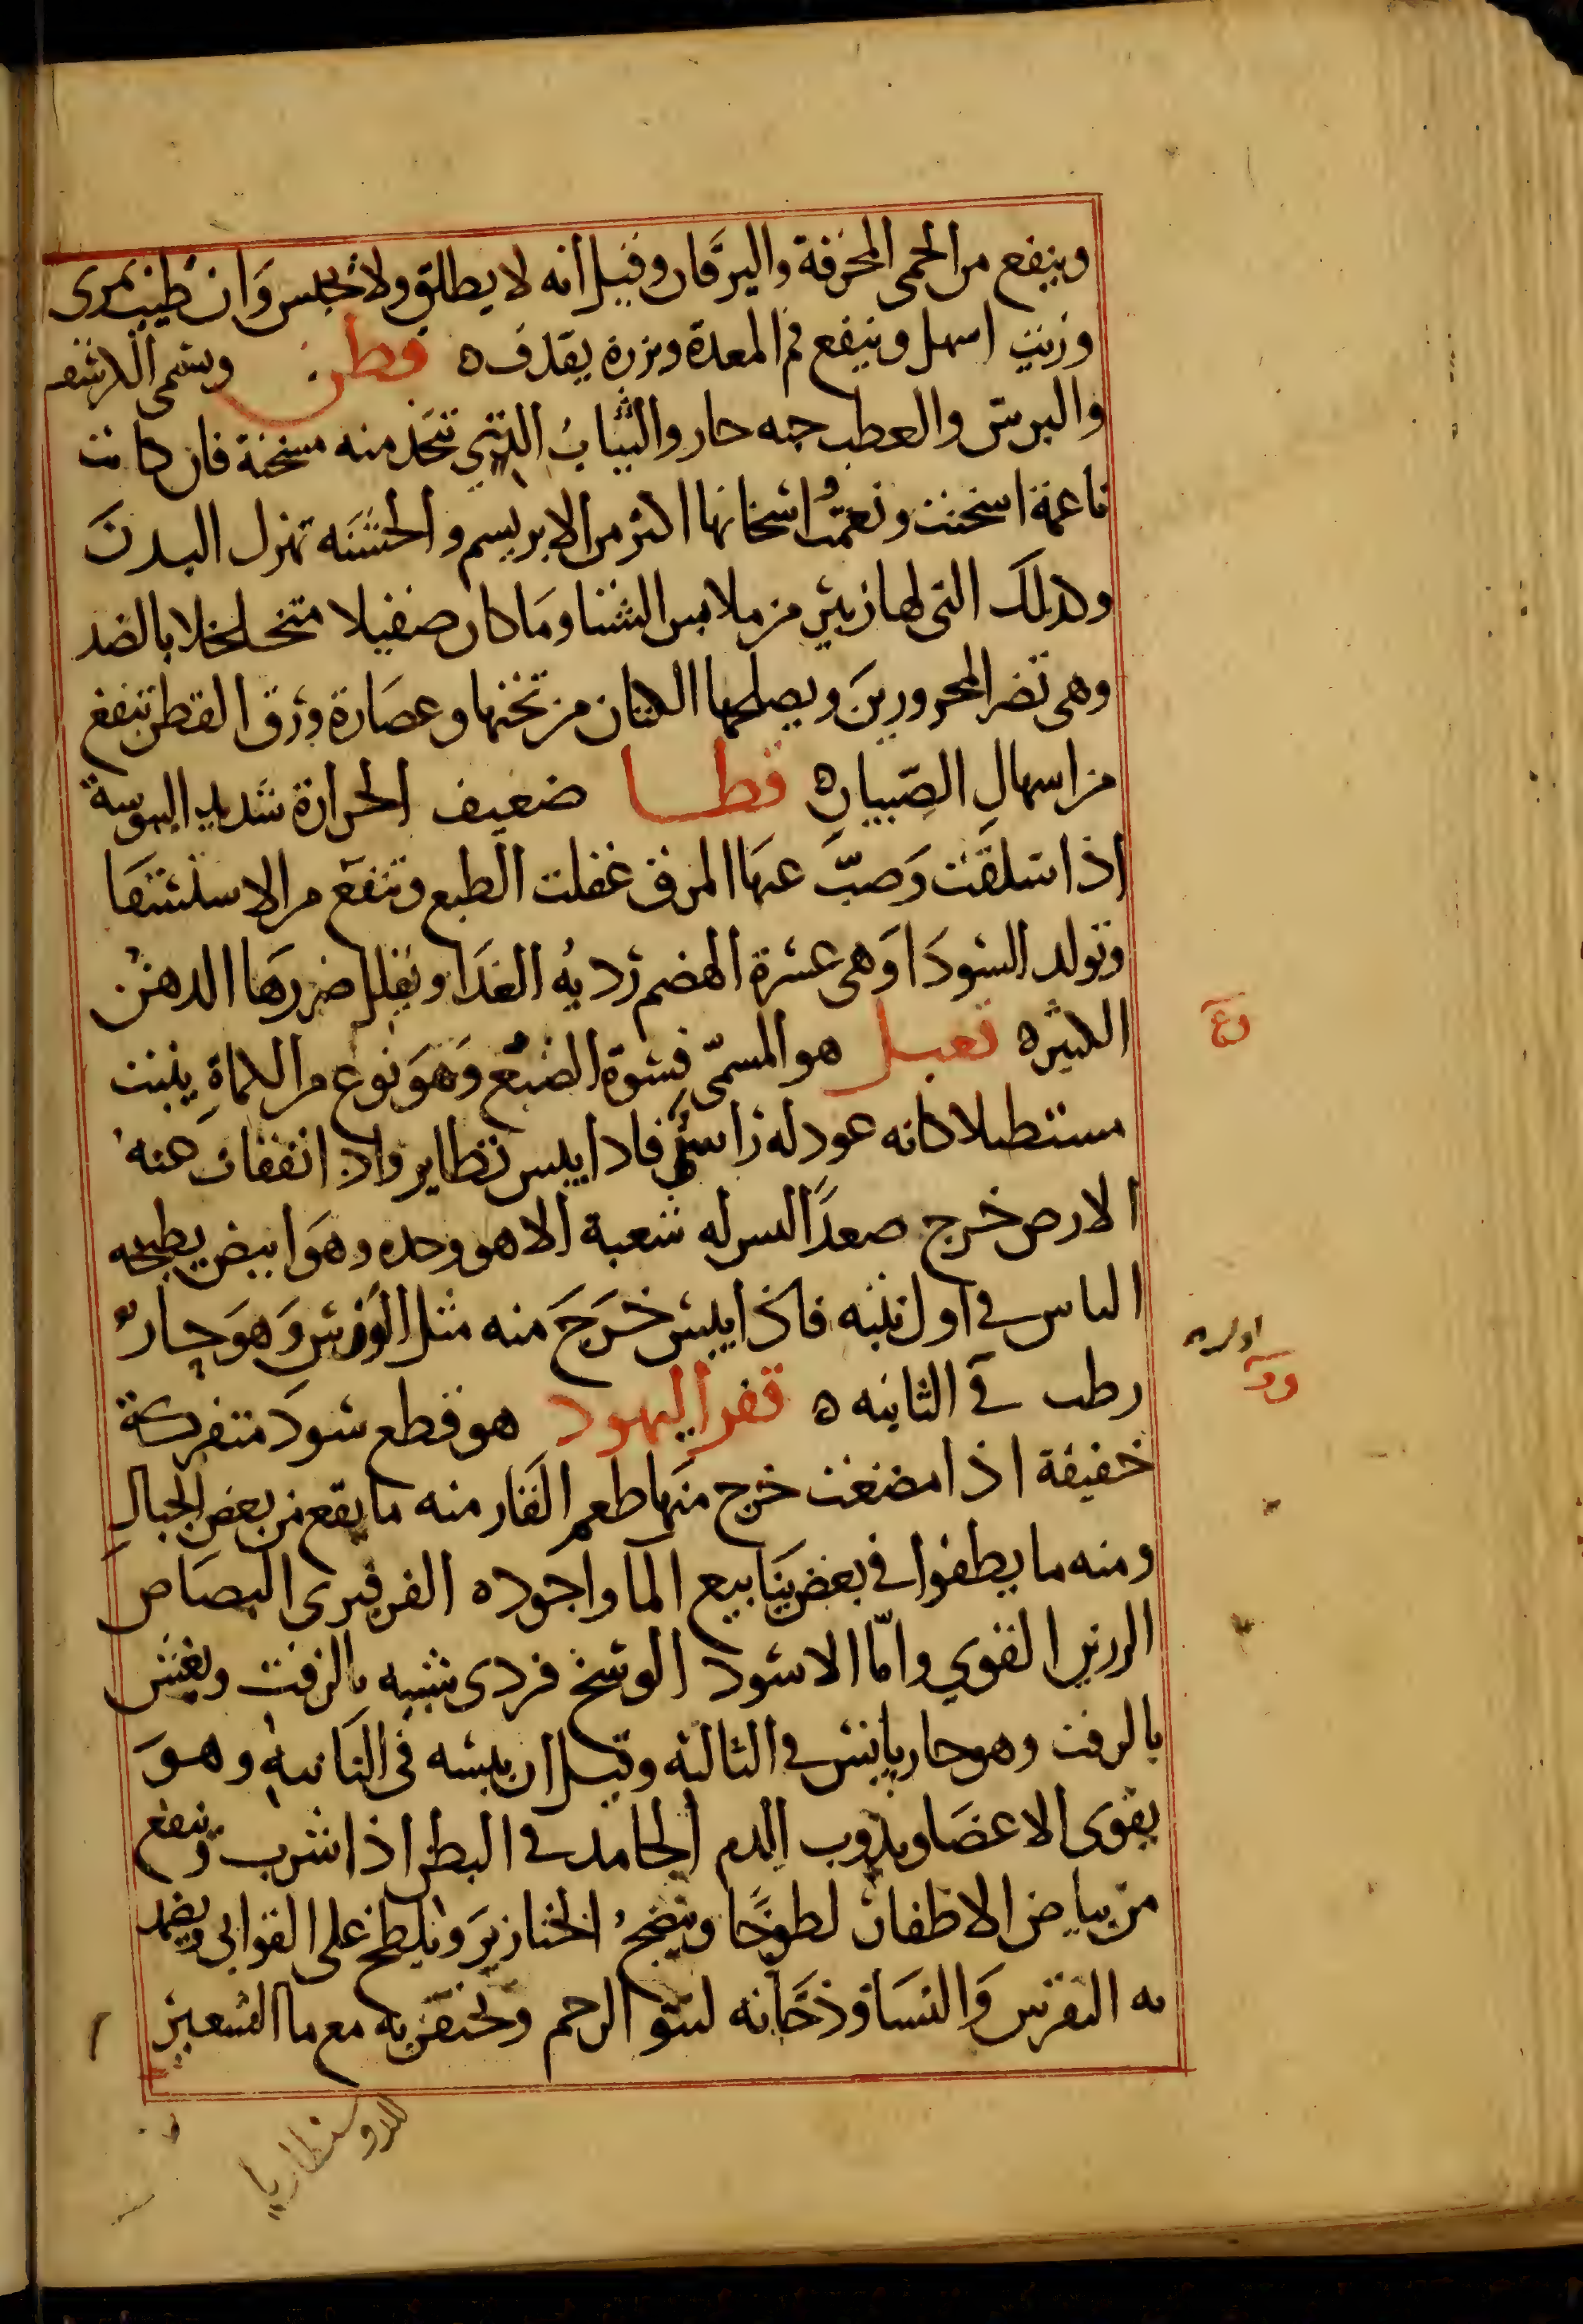 وينفع من الحمى المحرقة واليرقان وقيل انه لا يطلق ولا يحبس وان طيب بمرى
وزيت اسهل وينفع فم المعدة وبزره يقذف ه قطن ويسمى الكرسف
والبرس والعطب حبه حار والثياب التي تتخذ منه مسخنة فان كانت
ناعمة اسخنت ونعمت اسخانها اكثر من الابريسم والخشنه تهزل البدن
وكذلك التى لها زيبر من ملابس الشتا وما كان صفيلا متخلخلا بالضد
وهى تضر المحرورين ويصلحها الكتان من تحتها وعصارة ورق القطن تنفع
من اسهال الصبيان ه قطا ضعيف الحرارة شديد اليبوسة
اذا سلقت وصب عنها المرق عقلت الطبع وتنفع من الاستسقا
وتولد السودا وهى عسرة الهضم رديه الغدا ويقلل ضررها الدهن
الكثير ه قعبل هو المسمى فسوة الضبع وهو نوع من الكماة ينبت
مستطيلا كانه عود له راس فاذا يبس تطاير واذا انفقات عنه
الارض خرج صعدا ليس له شعبة الا هو وحده وهو ابيض يطبخه
الناس في اول نبته فاذا يبس خرج منه مثل الورس وهو حار
رطب في الثانيه ه قفر اليهود هو قطع سود متفركة
خفيفة اذا مضغت خرج منها طعم القار منه ما يقع من بعض الجبال
ومنه ما يطفوا في بعض ينابيع الما واجوده الفرفيرى البصاص
الرزين القوي واما الاسود الوسخ فردى شبيه بالزفت ويغش
بالزفت وهو حار يابس في الثالثه وقيل ان يبسه في الثانيه وهو
يقوى الاعضا ويذوب الدم الجامد في البطن اذا شرب وينفع
من بياض الاظفار لطوخا وينضج الخنازير ويلطخ على القوابى ويضمد
به النقرس والنسا ودخانه لنتو الرحم ويحتقن به مع ما الشعير
للدوسنطاريا